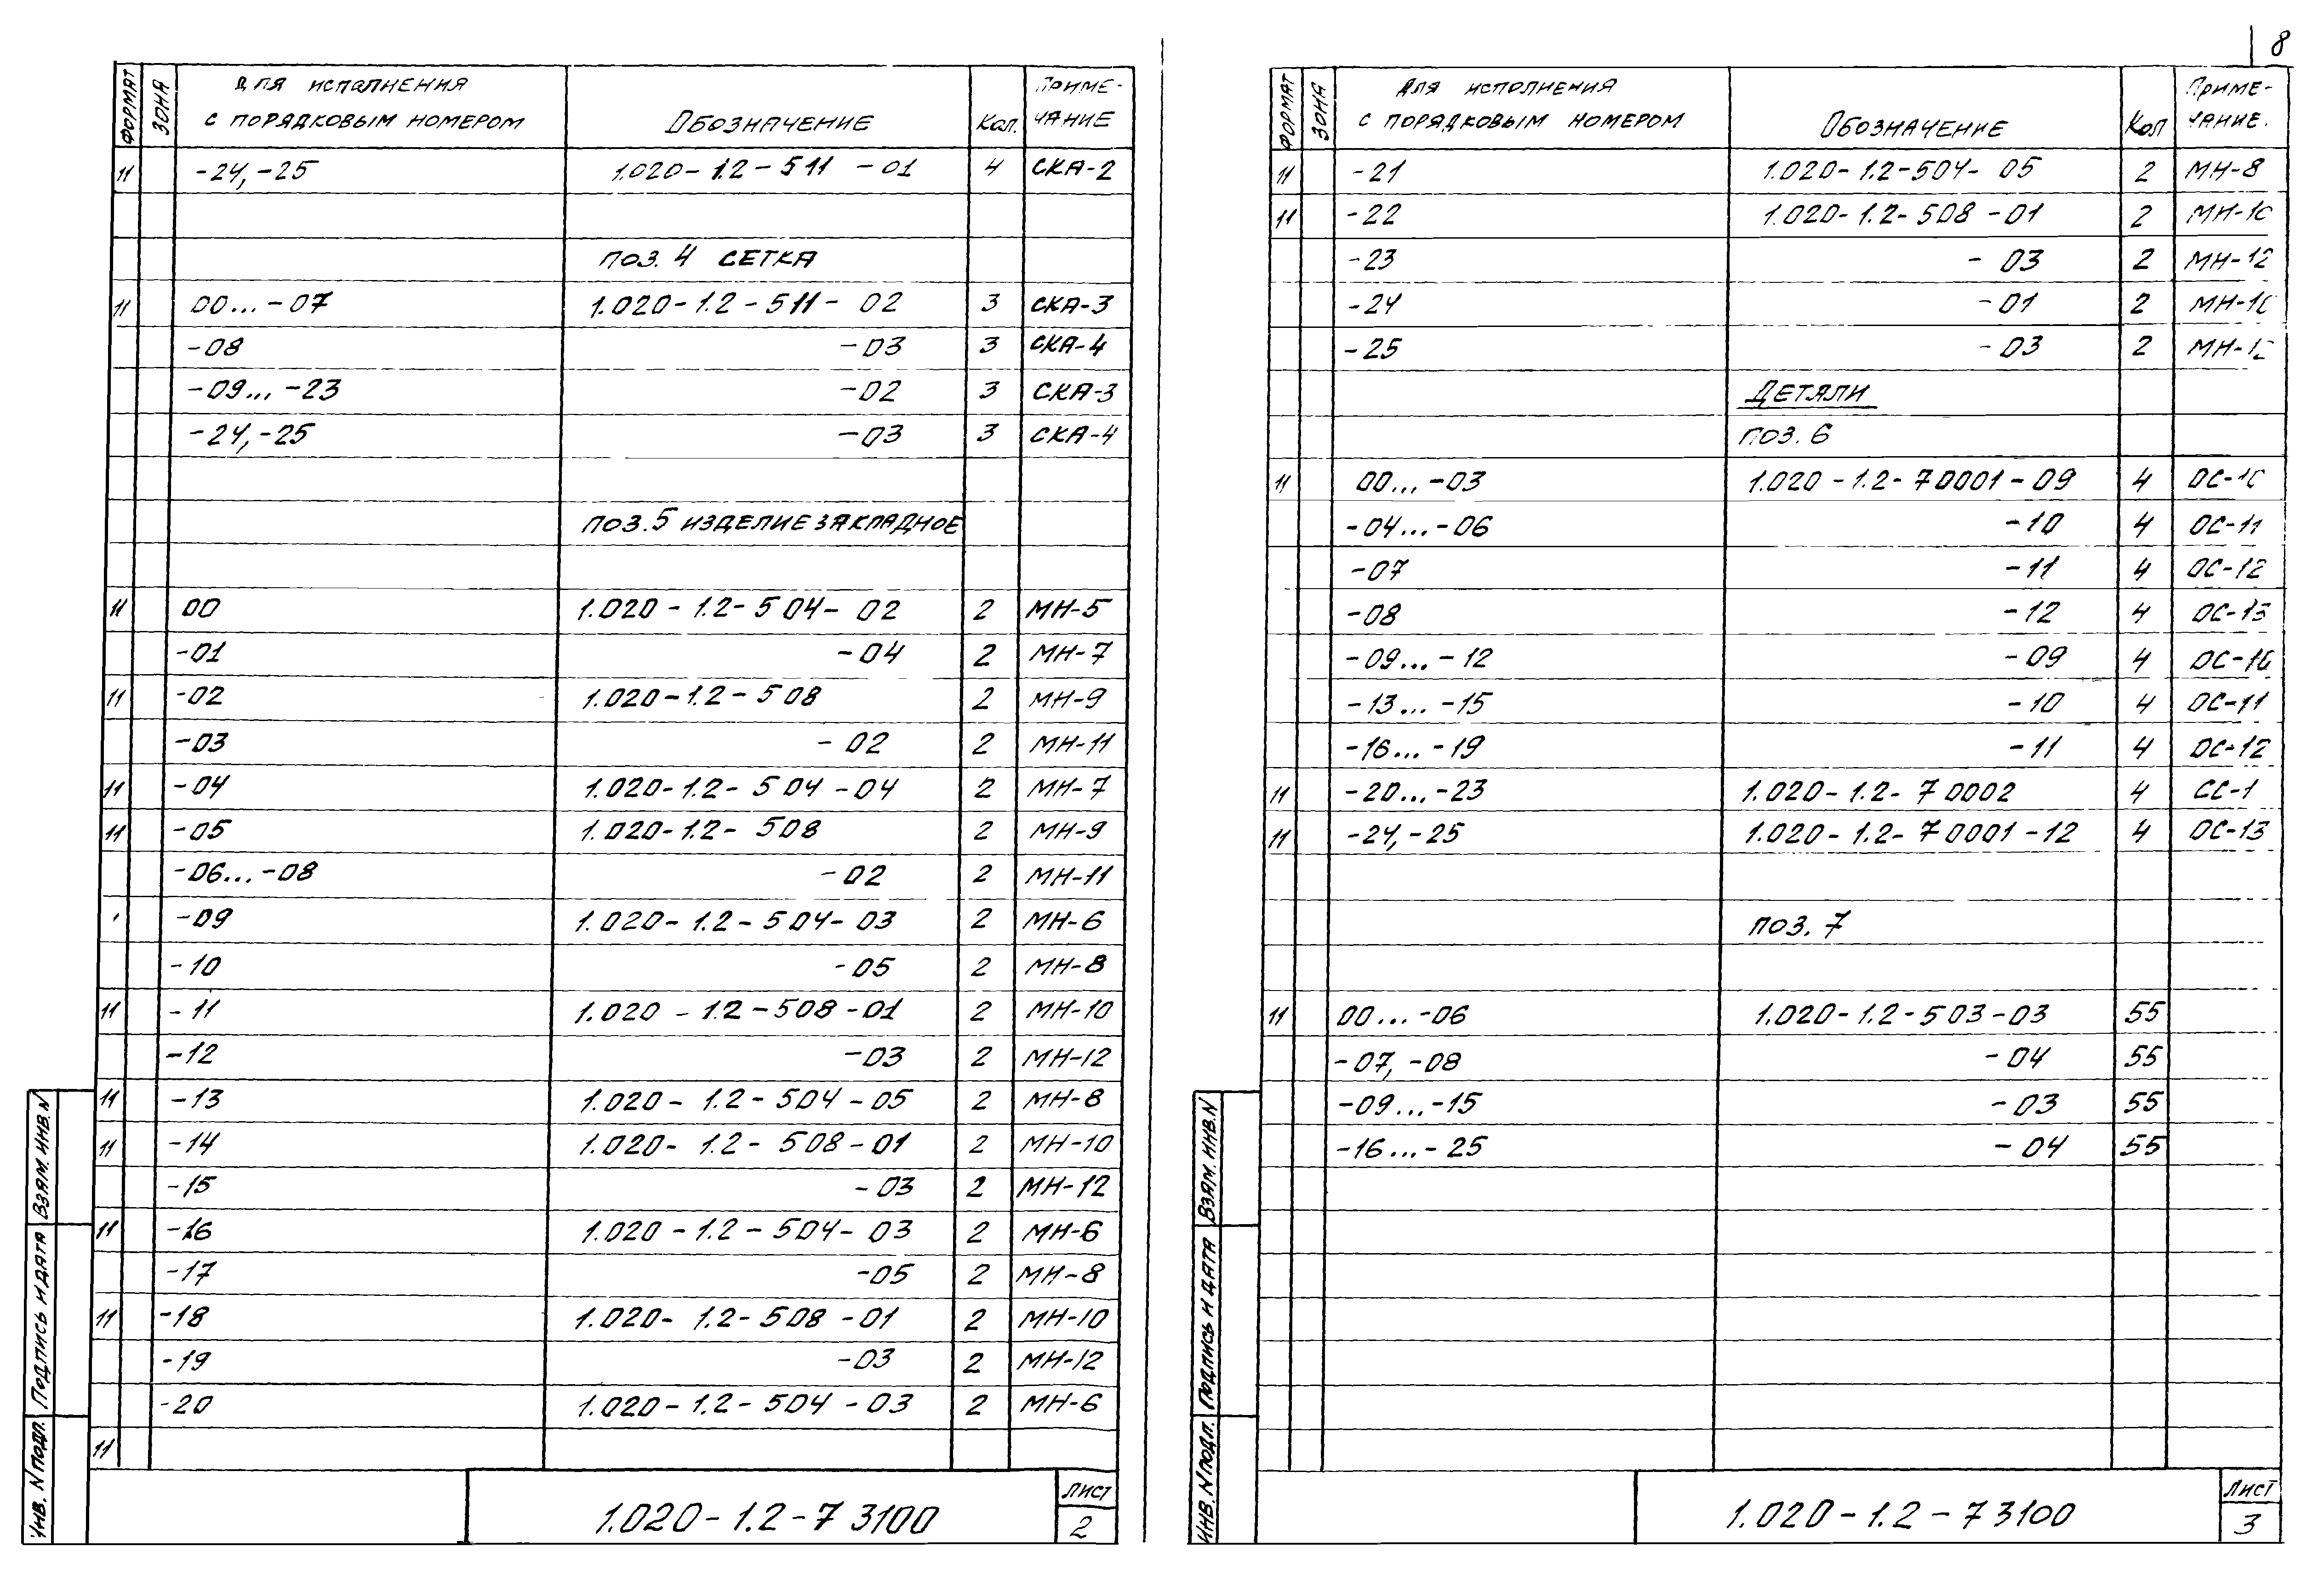 8
ФОРМАТ ЗОНА Для исполнения с порядковым номером Обозначение Кол. Приме-чание
11 -24, -25 1.020-1.2-511 -01 4 СКА-2
поз. 4 СЕТКА
11 00...-07 1.020-1.2-511-02 3 СКА-3
-08 -03 3 СКА-4
-09...-23 -02 3 СКА-3
-24,-25 -03 3 СКА-4
поз.5 изделие закладное
11 00 1.020-1.2-504-02 2 МН-5
-01 -04 2 МН-7
11 -02 1.020-1.2-508 2 МН-9
-03 -02 2 МН-11
11 -04 1.020-1.2-504-04 2 МН-7
11 -05 1.020-1.2-508 2 МН-9
-06...-08 -02 2 МН-11
-09 1.020-1.2-504-03 2 МН-6
-10 -05 2 МН-8
11 -11 1.020-1.2-508-01 2 МН-10
-12 -03 2 МН-12
11 -13 1.020-1.2-504-05 2 МН-8
11 -14 1.020-1.2-508-01 2 МН-10
-15 -03 2 МН-12
11 -16 1.020-1.2-504-03 2 МН-6
-17 -05 2 МН-8
11 -18 1.020-1.2-508-01 2 МН-10
-19 -03 2 МН-12
-20 1.020-1.2-504-03 2 МН-6
11
Инв. N подл. Подпись и дата Взам. инв. N
1.020-1.2-7 3100
Лист
2
ФОРМАТ ЗОНА Для исполнения с порядковым номером Обозначение Кол Приме-чание.
11 -21 1.020-1.2-504-05 2 МН-8
11 -22 1.020-1.2-508-01 2 МН-10
-23 -03 2 МН-12
-24 -01 2 МН-10
-25 -03 2 МН-12
Детали
поз. 6
11 00...-03 1.020-1.2-70001-09 4 ОС-10
-04...-06 -10 4 ОС-11
-07 -11 4 ОС-12
-08 -12 4 ОС-13
-09...-12 -09 4 ОС-10
-13...-15 -10 4 ОС-11
-16...-19 -11 4 ОС-12
11 -20...-23 1.020-1.2-70002 4 СС-1
11 -24,-25 1.020-1.2-70001-12 4 ОС-13
поз. 7
11 00...-06 1.020-1.2-503-03 55
-07, -08 -04 55
-09...-15 -03 55
-16...-25 -04 55
Инв. N подл. Подпись и дата Взам. инв. N
1.020-1.2-73100
Лист
3